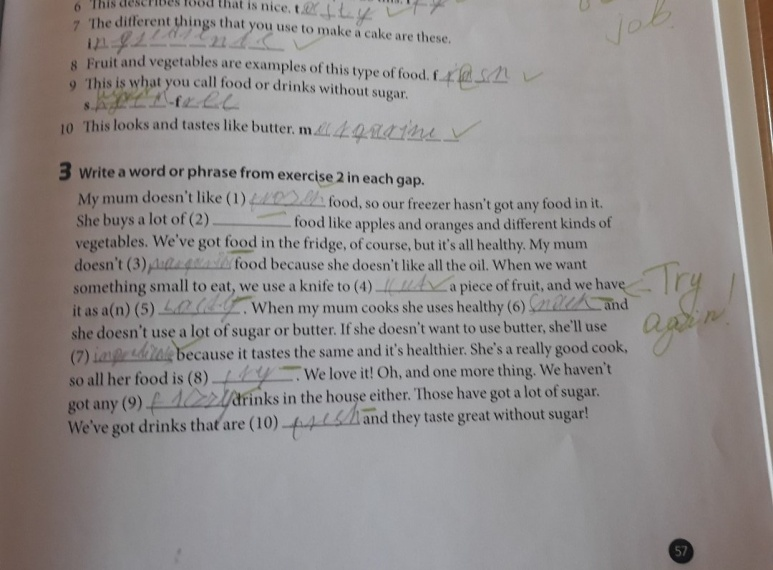 6 This describes food that is nice. tasty
job.
7 The different things that you use to make a cake are these.
ingredients
8 Fruit and vegetables are examples of this type of food. fresh
9 This is what you call food or drinks without sugar.
s -free
10 This looks and tastes like butter. margarine
3 Write a word or phrase from exercise 2 in each gap.
My mum doesn't like (1) frozen food, so our freezer hasn't got any food in it.
She buys a lot of (2) ________ food like apples and oranges and different kinds of
vegetables. We've got food in the fridge, of course, but it's all healthy. My mum
doesn't (3) margarine food because she doesn't like all the oil. When we want
something small to eat, we use a knife to (4) cut a piece of fruit, and we have
it as a(n) (5) tasty. When my mum cooks she uses healthy (6) snack and
Try again!
she doesn't use a lot of sugar or butter. If she doesn't want to use butter, she'll use
(7) because it tastes the same and it's healthier. She's a really good cook,
so all her food is (8) fry. We love it! Oh, and one more thing. We haven't
got any (9) fizzy drinks in the house either. Those have got a lot of sugar.
We've got drinks that are (10) fresh and they taste great without sugar!
57